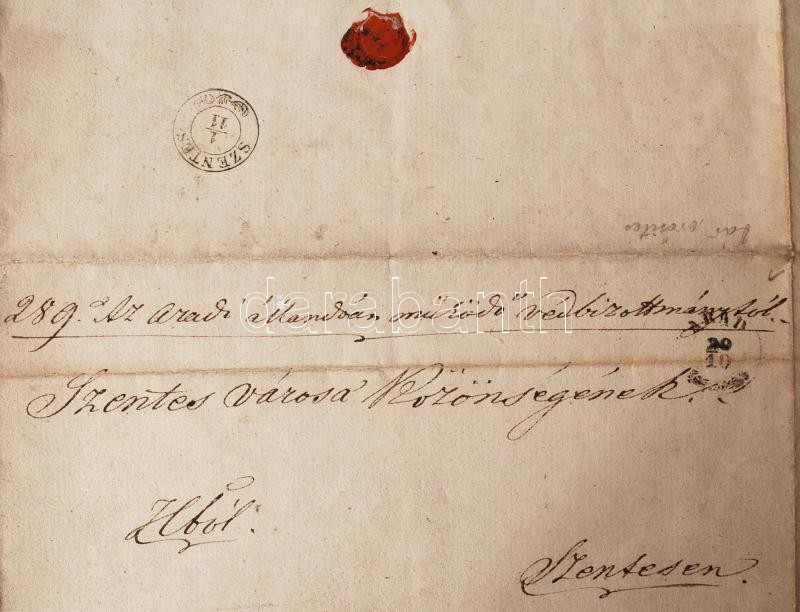 SZENTES
1
11
darabanth
289. Az aradi állandóan működő védbizottmánytól.
ARAD
20
10
Szentes városa Közönségének.
Hból.
Szentesen.